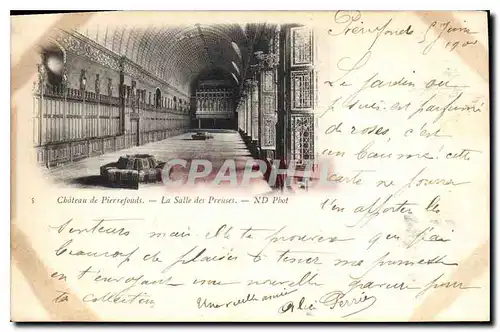 Pierrefond 5 Juin
1900
Le jardin où
je suis est parfumé
de roses, c'est
embaumé: cette
carte ne pourra
t'en apporter les
CPARAMA
5 Château de Pierrefonds. — La Salle des Preuses. — ND Phot
senteurs mais elle te prouvera que j'ai
beaucoup de plaisir à tenir ma promesse
en t'envoyant une nouvelle parure pour
ta collection Une vieille amie Alice Perrier